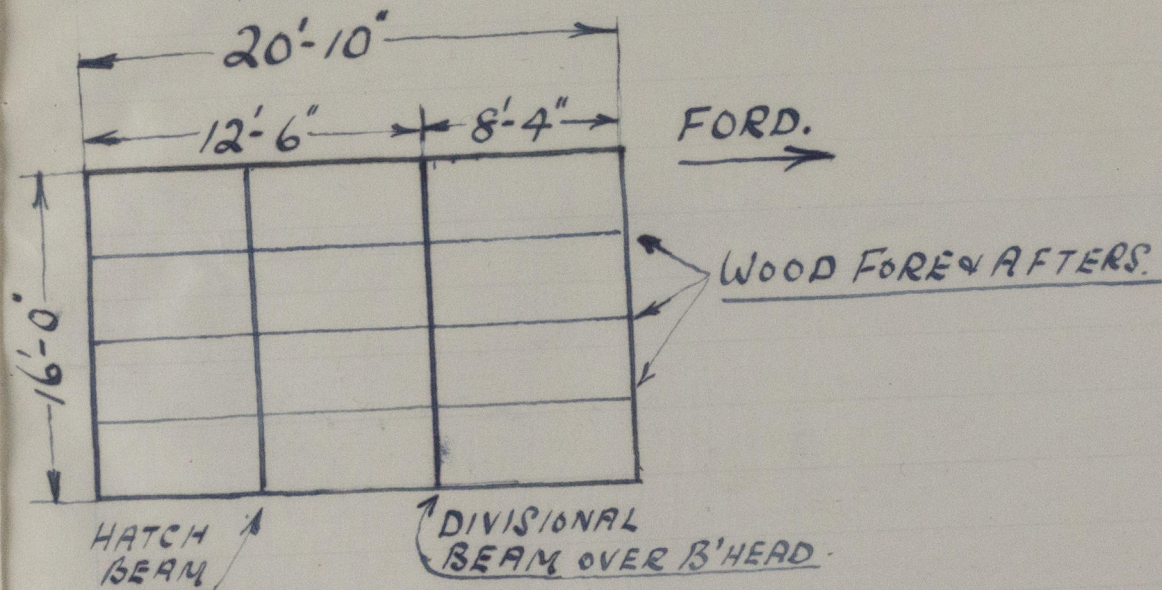 20'-10"
12'-6" 8'-4"
FORD.
WOOD FORE & AFTERS.
16'-0"
HATCH
BEAM
DIVISIONAL
BEAM OVER B'HEAD.